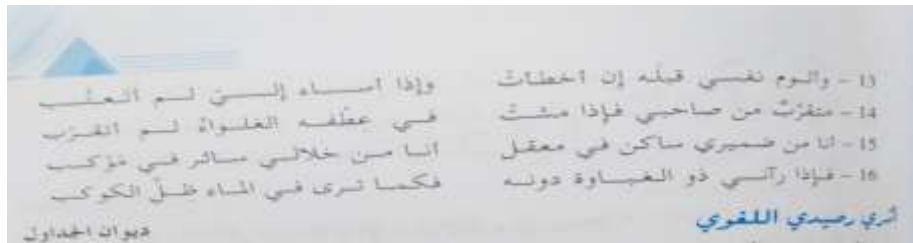 13 - وألوم نفسي قبله إن أخطأت    وإذا أساء إلي لم أتعتب
14 - متقرب من صاحبي فإذا مشت    في عطفه الغلواء لم أتقرب
15 - أنا من ضميري ساكن في معقل    أنا من خلالي سائر في موكب
16 - فإذا رآني ذو الغباوة دونه    فكما ترى في الماء ظل الكوكب
ديوان الجداول
أثري رصيدي اللغوي